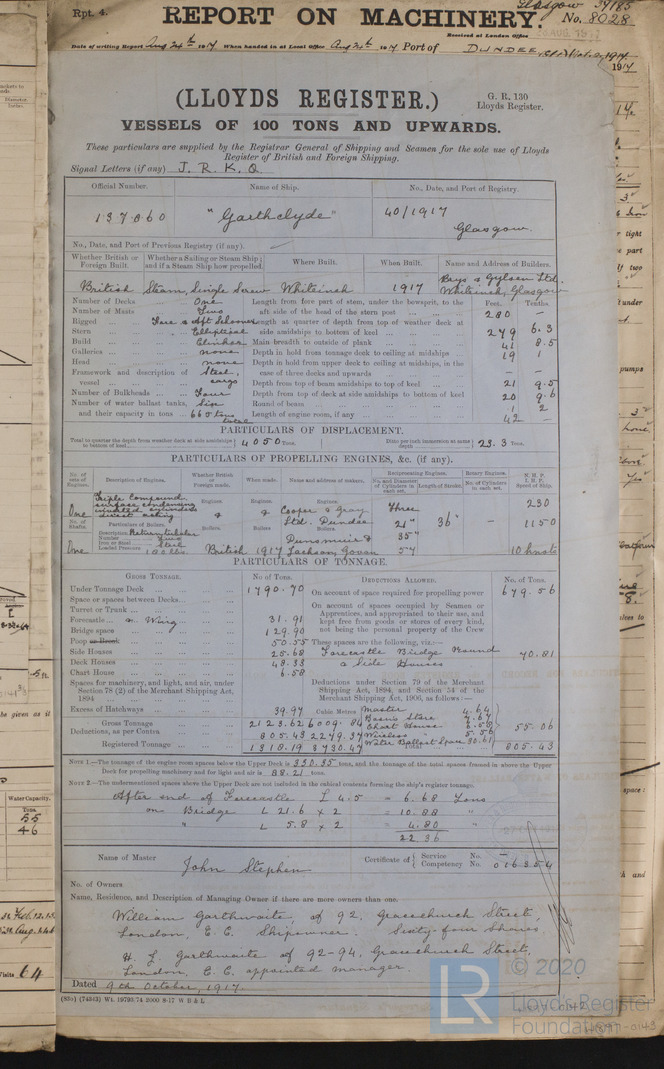 Rpt. 4.
REPORT ON MACHINERY.
Glasgow 37185
No. 8028
Received at London Office
Date of writing Report Aug 24th 1917 When handed in at Local Office Aug 24th 1917 Port of DUNDEE
1917
(LLOYDS REGISTER.)
G. R. 130
Lloyds Register.
VESSELS OF 100 TONS AND UPWARDS.
These particulars are supplied by the Registrar General of Shipping and Seamen for the sole use of Lloyds
Register of British and Foreign Shipping.
Signal Letters (if any) J. R. K. Q.
Official Number. Name of Ship. No., Date, and Port of Registry.
137060 "Garthclyde" 40/1917
Glasgow.
No., Date, and Port of Previous Registry (if any).
Whether British or Foreign Built. Whether a Sailing or Steam Ship; and if a Steam Ship how propelled. Where Built. When Built. Name and Address of Builders.
British Steam, Single Screw Whiteinch 1917 Whiteinch, Glasgow
Number of Decks One Length from fore part of stem, under the bowsprit, to the Feet. Tenths.
Number of Masts Two aft side of the head of the stern post 280 –
Rigged Fore & Aft Schooner Length at quarter of depth from top of weather deck at
Stern Elliptical side amidships to bottom of keel 279 6.3
Build Clincher Main breadth to outside of plank 41 8.5
Galleries none Depth in hold from tonnage deck to ceiling at midships 19 1
Head none Depth in hold from upper deck to ceiling at midships, in the
Framework and description of Steel, case of three decks and upwards – –
vessel cargo Depth from top of beam amidships to top of keel 21 9.5
Number of Bulkheads Four Depth from top of deck at side amidships to bottom of keel 20 9.6
Number of water ballast tanks, Six, Round of beam 1 2
and their capacity in tons 665 tons total Length of engine room, if any 42 –
PARTICULARS OF DISPLACEMENT.
Total to quarter the depth from weather deck at side amidships to bottom of keel 4050 Tons. Ditto per inch immersion at same depth 23.3 Tons.
PARTICULARS OF PROPELLING ENGINES, &c. (if any).
No. of sets of Engines. Description of Engines. Whether British or Foreign made. When made. Name and address of makers. Reciprocating Engines. Rotary Engines. N.H.P. I.H.P. Speed of Ship.
No. and Diameter of Cylinders in each set. Length of Stroke. No. of Cylinders in each set.
One Triple Compound surface condensing inverted cylinders direct acting Engines. Engines. Engines. Cooper & Greig Ltd. Dundee Three 230
No. of Shafts. Particulars of Boilers. Boilers Boilers Boilers 21" 36" – 1150
Description Return tubular
Number Two Dunsmuir & 35"
Iron or Steel Steel
One Loaded Pressure 180 lbs. British 1917 Jackson, Govan 57 10 knots
PARTICULARS OF TONNAGE.
GROSS TONNAGE. No. of Tons. DEDUCTIONS ALLOWED. No. of Tons.
Under Tonnage Deck 1790.70 On account of space required for propelling power 679.56
Space or spaces between Decks
Turret or Trunk On account of spaces occupied by Seamen or
Forecastle on Wing 31.91 Apprentices, and appropriated to their use, and
Bridge space 129.90 kept free from goods or stores of every kind,
Poop or Break 50.55 not being the personal property of the Crew
Side Houses 25.68 These spaces are the following, viz.:—
Deck Houses 48.33 Forecastle Bridge Round & Side Houses 70.81
Chart House 6.58
Spaces for machinery, and light, and air, under Section 78 (2) of the Merchant Shipping Act, 1894
Deductions under Section 79 of the Merchant Shipping Act, 1894, and Section 54 of the Merchant Shipping Act, 1906, as follows:—
Excess of Hatchways 39.97 Cubic Metres. Master 4.64
Bosn's Store 7.67
Gross Tonnage 2123.62 6009.84 Chart House 6.58 55.06
Deductions, as per Contra 805.43 2279.37 Wireless 5.56
Water Ballast Space 30.61
Registered Tonnage 1318.19 3730.47 Total 805.43
NOTE 1.—The tonnage of the engine room spaces below the Upper Deck is 330.35 tons, and the tonnage of the total spaces framed in above the Upper
Deck for propelling machinery and for light and air is 88.21 tons.
NOTE 2.—The undermentioned spaces above the Upper Deck are not included in the cubical contents forming the ship's register tonnage.
After end of Forecastle L 4.5 = 6.68 Tons
on Bridge L 21.6 × 2 = 10.88 "
" L 5.8 × 2 = 4.80 "
22.36
Name of Master John Stephen Certificate of Service No. –
Competency No. 016354
No. of Owners
Name, Residence, and Description of Managing Owner if there are more owners than one.
William Garthwaite, of 92, Gracechurch Street,
London, E. C. Shipowner. Sixty-four Shares.
H. L. Garthwaite of 92-94, Gracechurch Street,
London, E. C. appointed manager.
Dated 9th October, 1917.
(80c) (74543) Wt. 19793/74 2000 8-17 W B & L
© 2020
LR
Lloyd's Register
Foundation
Water Capacity.
Tons.
55
46
Visits 64